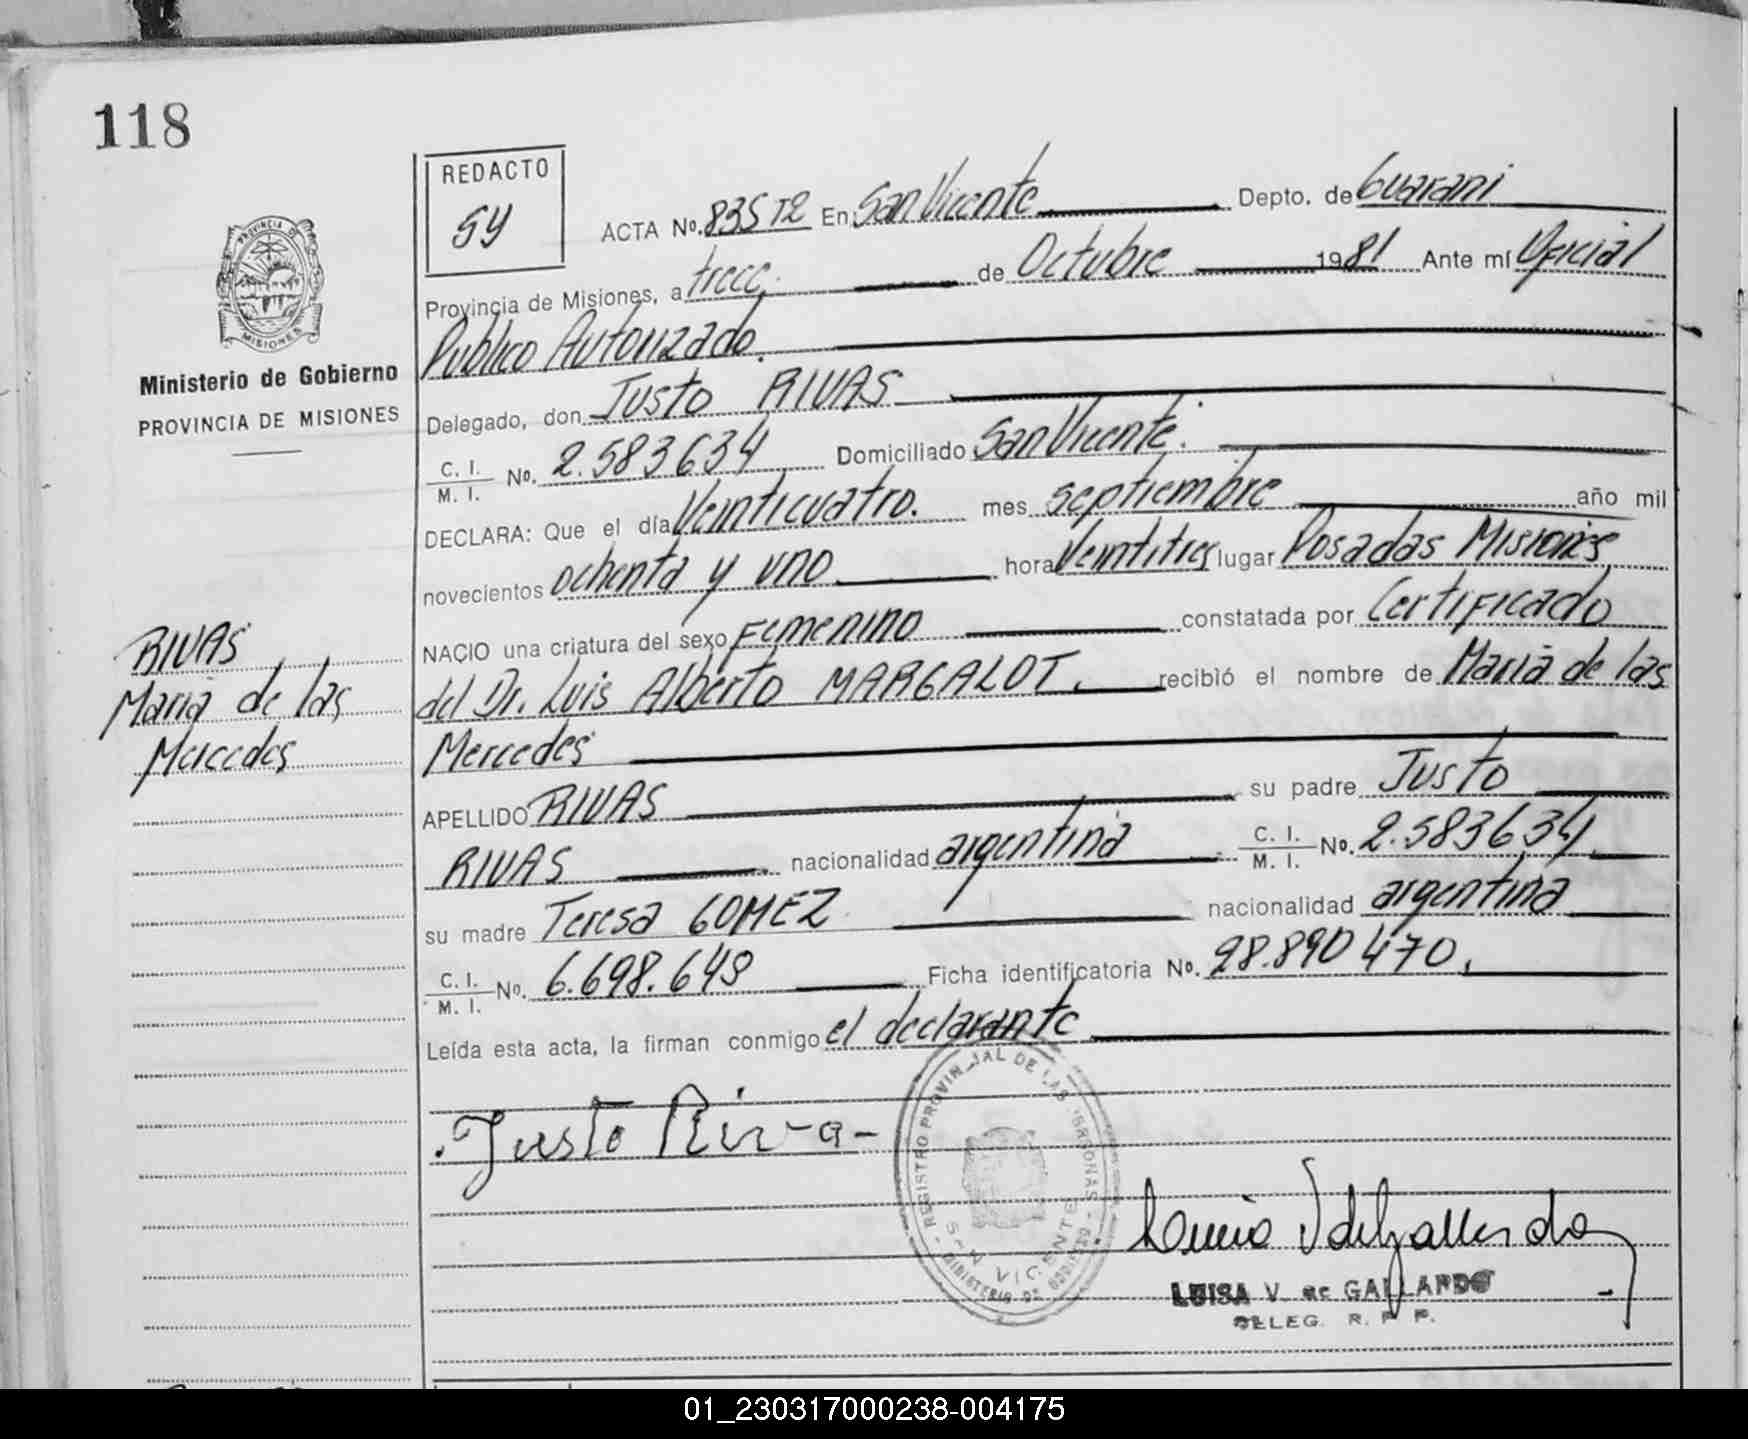 118
REDACTO
SY
ACTA No. 835 T2 En San Vicente Depto. de Guarani
Provincia de Misiones, a trece de Octubre 1981 Ante mí Oficial
Publico Autorizado.
Delegado, don Justo RIVAS
C. I. / M. I. No. 2.583634 Domiciliado San Vicente.
DECLARA: Que el día Veinticuatro. mes septiembre año mil
novecientos ochenta y uno hora Veintitres lugar Posadas Misiones,
NACIO una criatura del sexo Femenino constatada por Certificado
del Dr. Luis Alberto MARGALOT. recibió el nombre de Maria de las
Mercedes
APELLIDO RIVAS su padre Justo
RIVAS nacionalidad argentina C. I. / M. I. No. 2.583634
su madre Teresa GOMEZ nacionalidad argentina
C. I. / M. I. No. 6.698.649 Ficha identificatoria No. 28.890 470.
Leída esta acta, la firman conmigo el declarante
PROVINCIA DE MISIONES
Ministerio de Gobierno
PROVINCIA DE MISIONES
RIVAS
Maria de las
Mercedes
Justo Riva
REGISTRO PROVINCIAL DE LAS PERSONAS
SAN VICENTE
MINISTERIO DE GOBIERNO
LUISA V. de GALLARDO
DELEG. R. P. P.
01_230317000238-004175